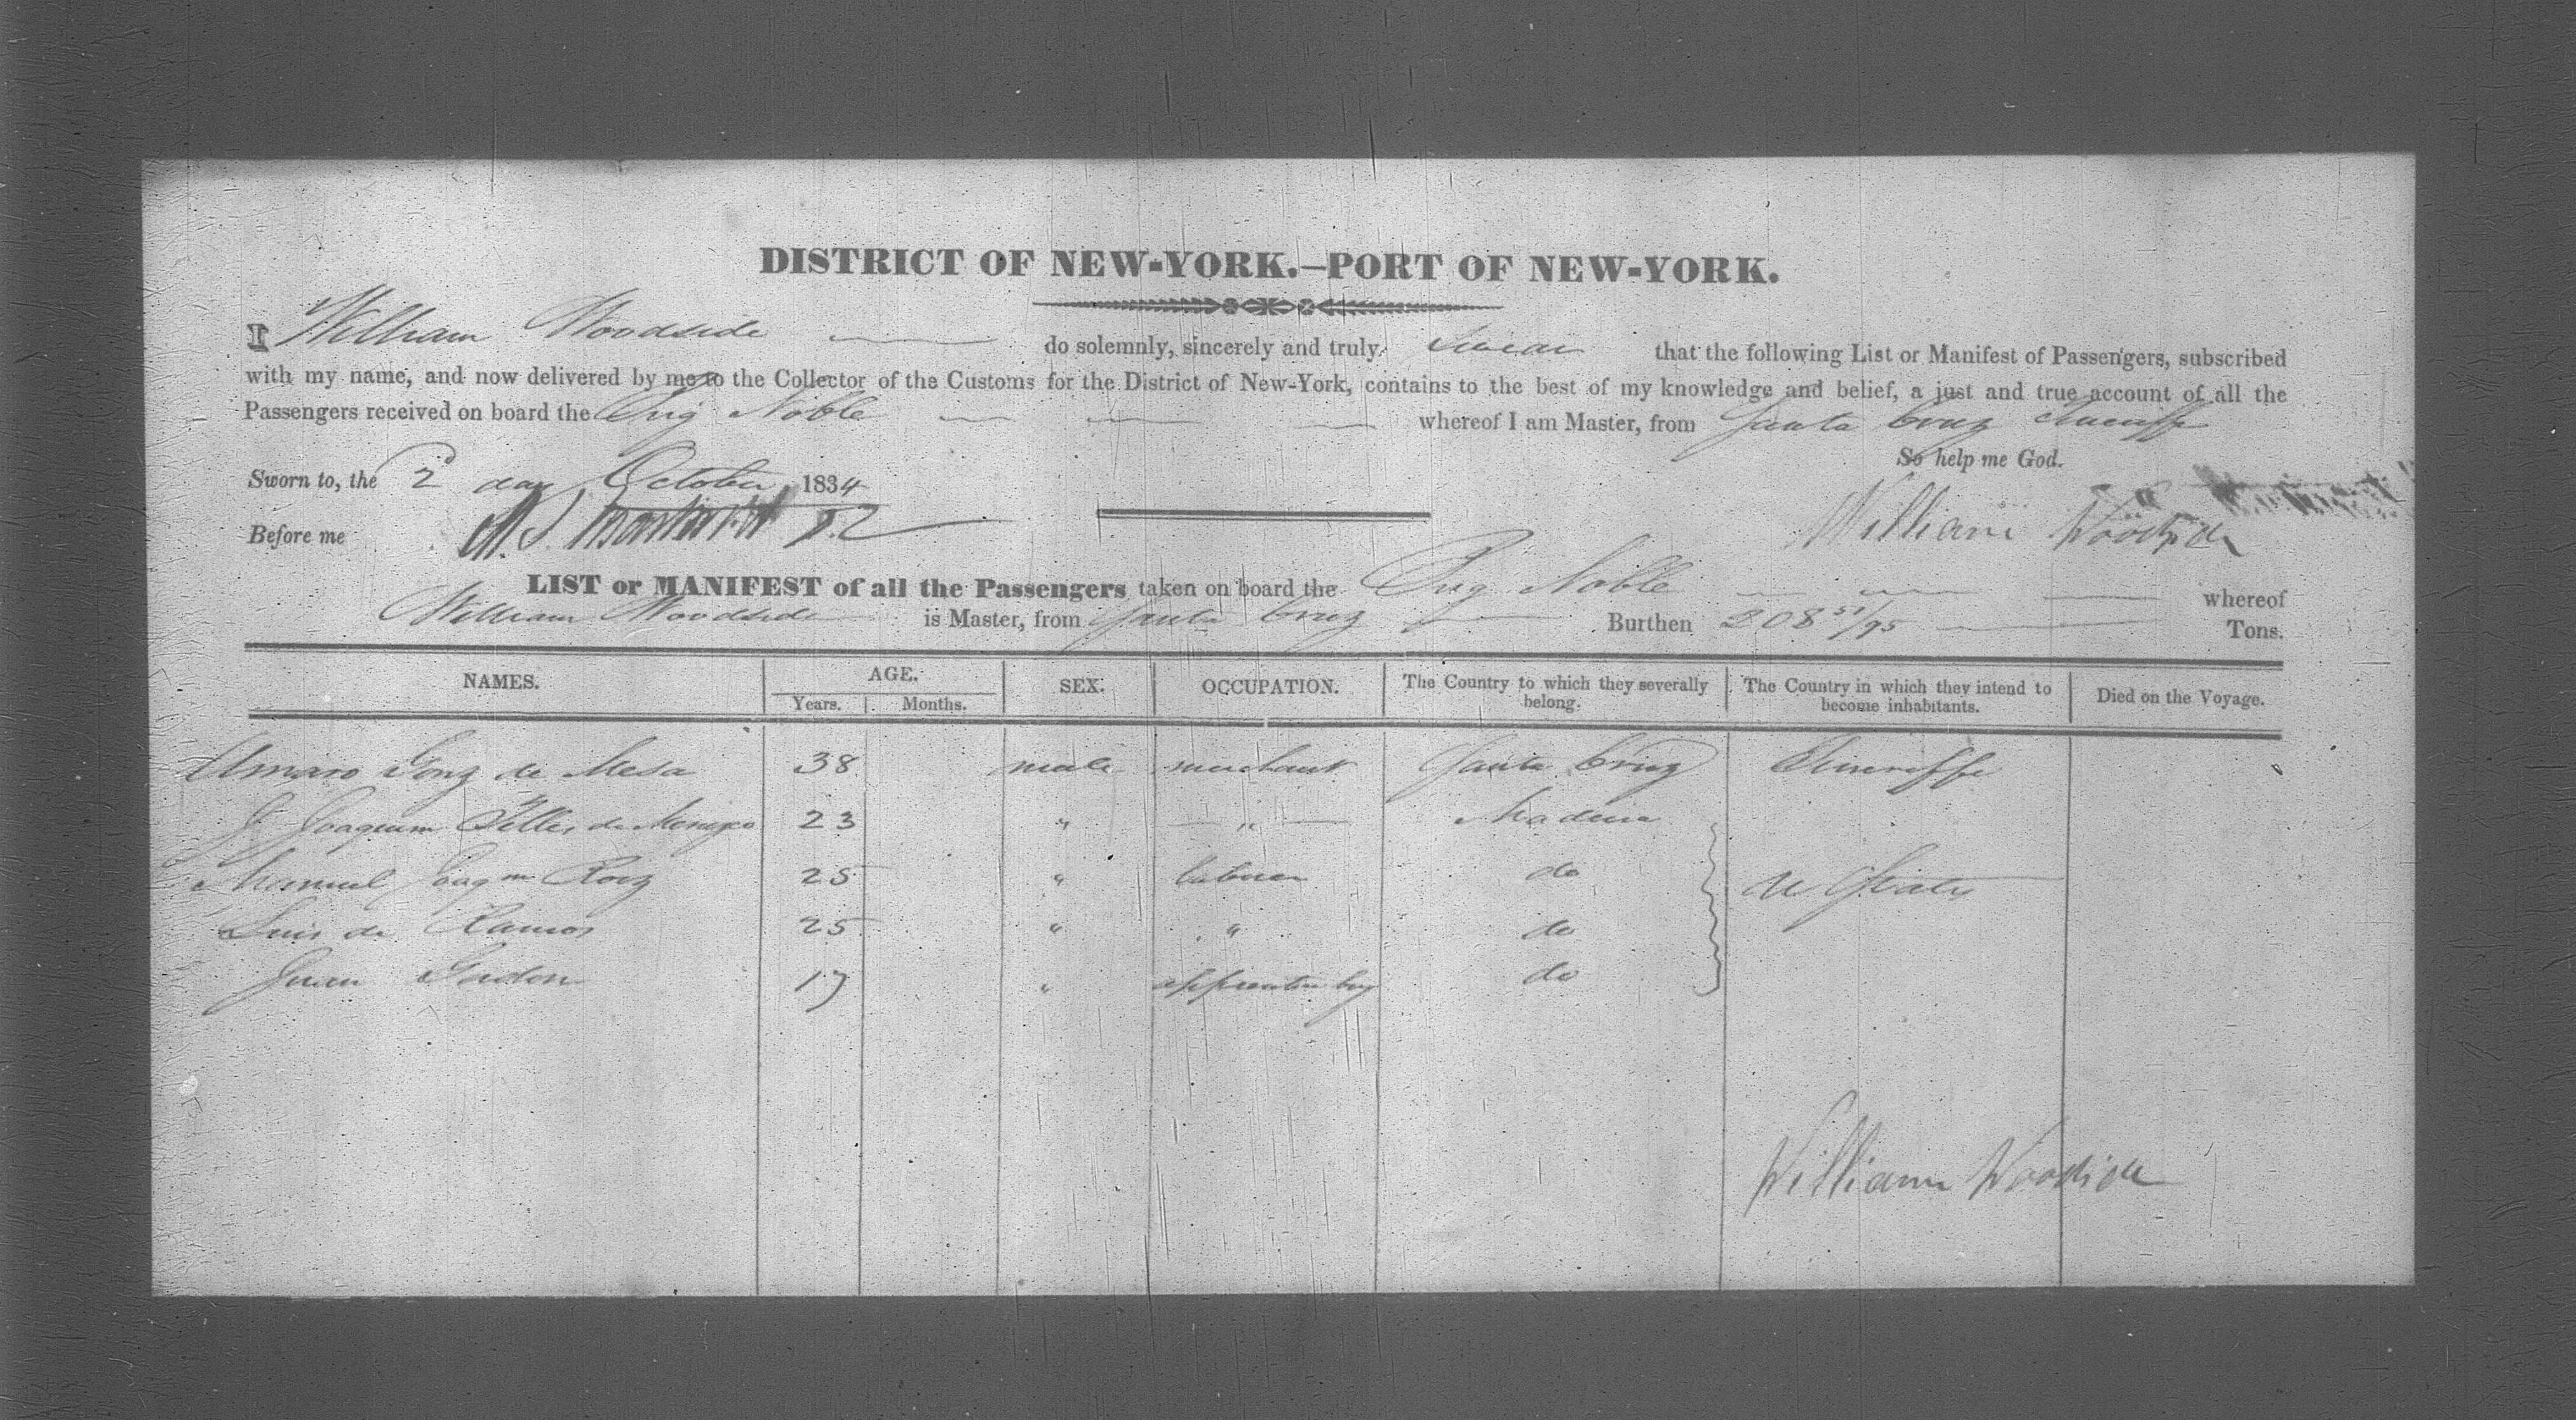 DISTRICT OF NEW-YORK.—PORT OF NEW-YORK.
I William Woodside do solemnly, sincerely and truly swear that the following List or Manifest of Passengers, subscribed
with my name, and now delivered by me to the Collector of the Customs for the District of New-York, contains to the best of my knowledge and belief, a just and true account of all the
Passengers received on board the Brig Noble whereof I am Master, from Santa Cruz Teneriffe
So help me God.
Sworn to, the 2d day October 1834
Before me William Woodside
LIST or MANIFEST of all the Passengers taken on board the Brig Noble whereof
William Woodside is Master, from Santa Cruz Burthen 208 51/95 Tons.
NAMES. AGE. Years. Months. SEX. OCCUPATION. The Country to which they severally belong. The Country in which they intend to become inhabitants. Died on the Voyage.
Amaro Gonz de Mesa 38 male merchant Santa Cruz Teneriffe
J Joaquim Telles de 23 " — " — Madeira
Manuel Joaqm Roiz 25 " laborer do U States
Luis de Ramos 25 " " do
Juan 17 " apprentice boy do
William Woodside